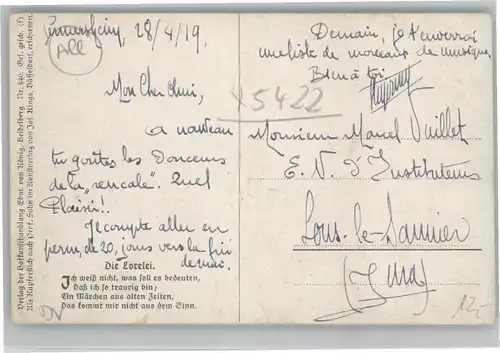 28/4/19
Mon Cher Ami,
A nouveau
tu goûtes les Douceurs
de la „rencale". Quel
Plaisir!
Je compte aller en
perm, de 20 jours vers la fin
de mai.
All
Demain, je t'enverrai
une liste de morceaux de musique.
Bien à toi
x5422
Monsieur Marcel Vuillet
E. N. d'Instituteurs
Lons-le-Saunier
(Jura)
12,-
Die Lorelei.
Ich weiß nicht, was soll es bedeuten,
Daß ich so traurig bin;
Ein Märchen aus alten Zeiten,
Das kommt mir nicht aus dem Sinn.
Verlag der Hofkunsthandlung Edm. von König, Heidelberg. Nr. 446. Ges. gesch. (F)
Als Kupferstich nach Prof. Sohn im Kunstverlag von Jos. Kings, Düsseldorf, erschienen.